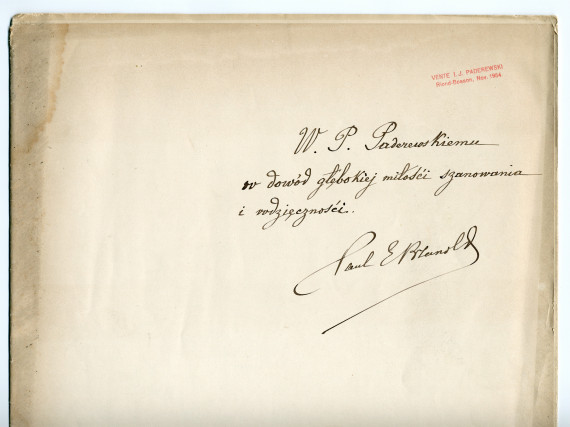 VENTE I. J. PADEREWSKI
Riond-Bosson, Nov. 1954
W. P. Paderewskiemu
w dowód głębokiej miłości szanowania
i wdzięczności.
Paul